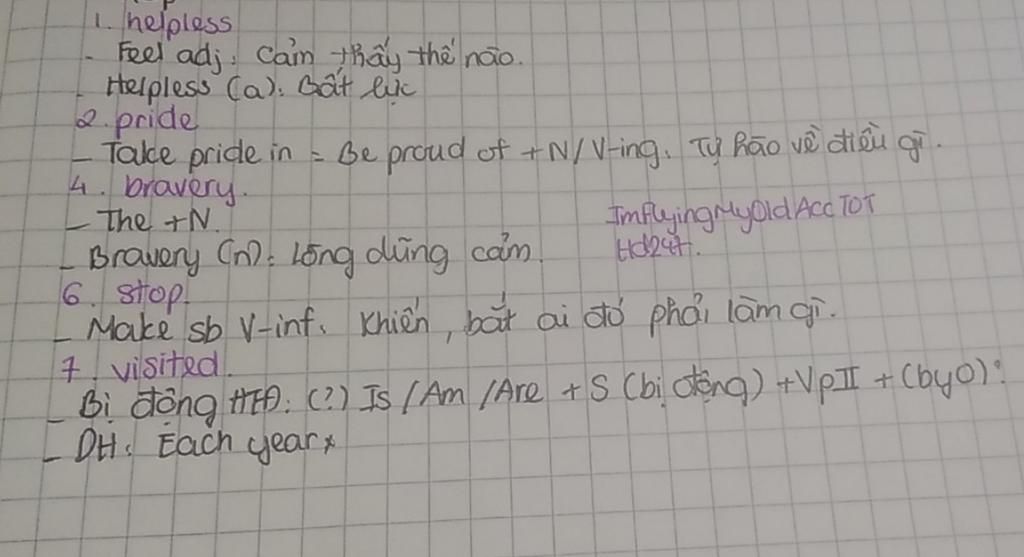 1. helpless
- Feel adj: Cảm thấy thế nào.
- Helpless (a): Bất lực
2. pride
- Take pride in = Be proud of + N/V-ing. Tự hào về điều gì.
4. bravery.
- The + N.
ImFlyingMyOldAccTOT
- Bravery (n): Lòng dũng cảm.
Hd247.
6. stop.
- Make sb V-inf. Khiến, bắt ai đó phải làm gì.
7. visited.
- Bị động HTĐ: (?) Is/Am/Are + S (bị động) + VpII + (by O)?
- DH: Each year*